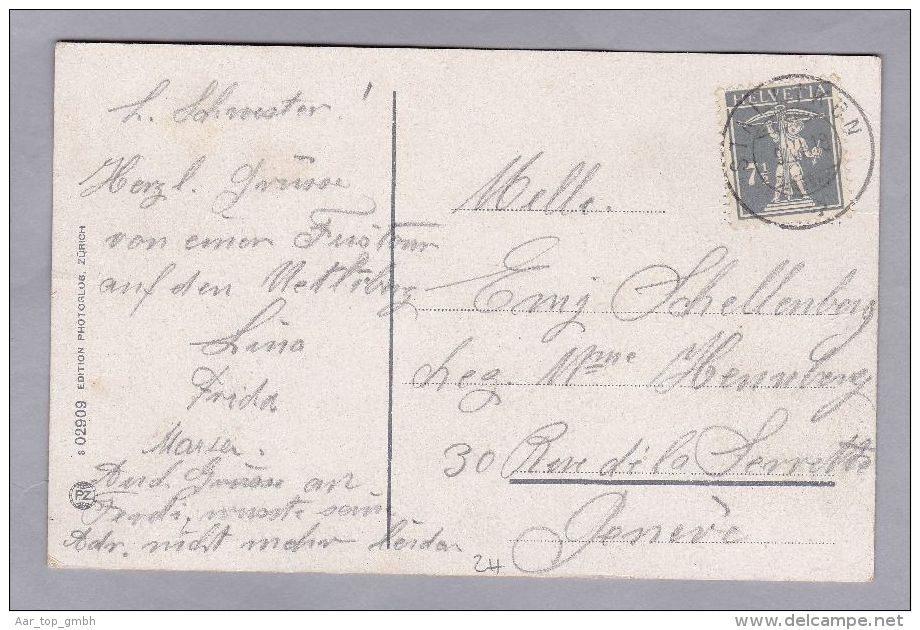 L. Schwester!
Herzl. Grüsse
von einer Fusstour
auf den Uetliberg
Lina
Frida
Marie.
Auch Grüsse an
Ferdi, wusste seine
Adr. nicht mehr leider
S 02909 EDITION PHOTOGLOB, ZÜRICH
PZ
HELVETIA
7½
Melle.
Emy Schellenberg
Mme Hennberg
30 Rue de la Servette
Genève
2H
Aar_top_gmbh
www.delcampe.net